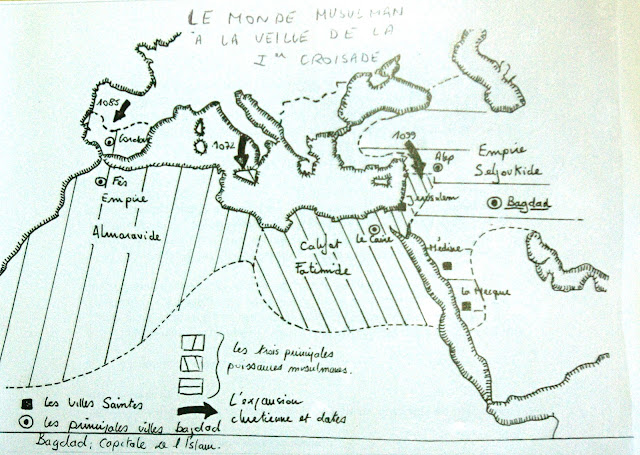 LE MONDE MUSULMAN
A LA VEILLE DE LA
Ière CROISADE
1085
Cordoba
1072
1099
Alep
Empire
Seljoukide
Bagdad
Jerusalem
Fès
Empire
Almoravide
Le Caire
Califat
Fatimide
Médine
La Mecque
Les trois principales
puissances musulmanes.
Les Villes Saintes
L'expansion
chrétienne et dates
Les principales villes bagdad
Bagdad, Capitale de l'Islam.